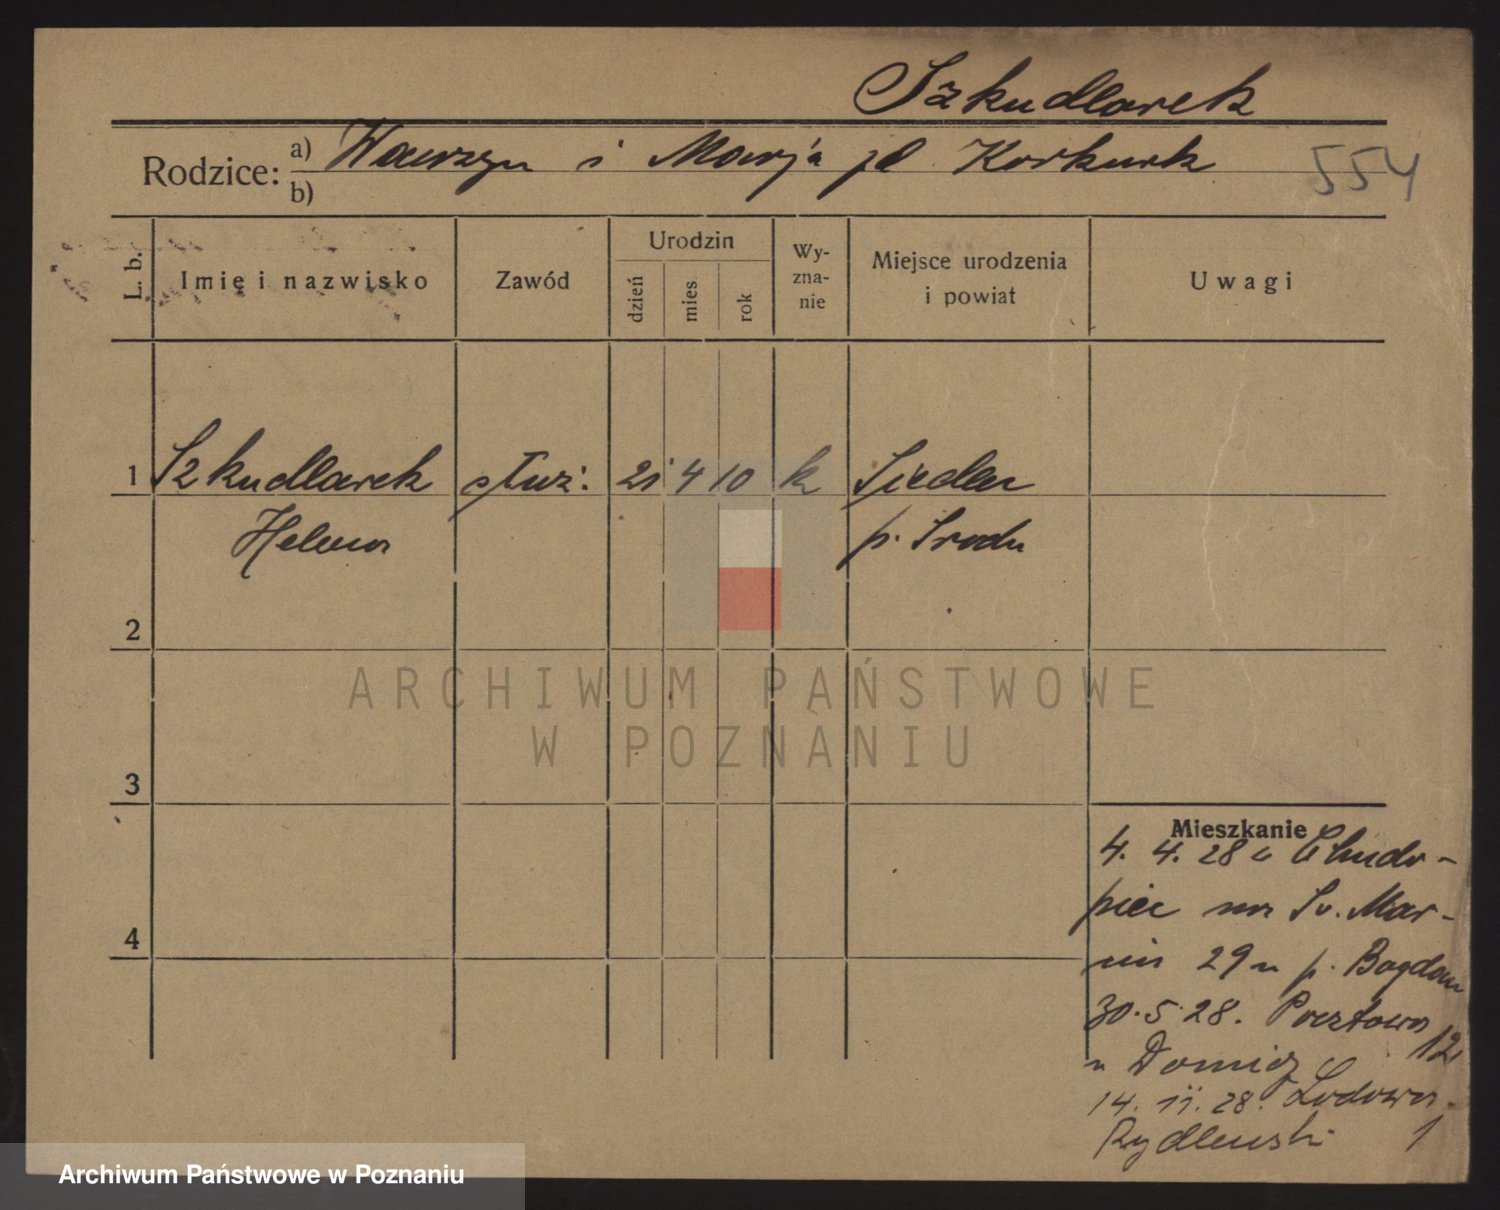 Szkudlarek
Rodzice: a) Wawrzyn i Marja zd Korkurk
b)
554
L. b.
Imię i nazwisko
Zawód
Urodzin
dzień
mies.
rok
Wy-
zna-
nie
Miejsce urodzenia
i powiat
Uwagi
1 Szkudlarek służ. 21 4 10 k Siedlec
Helena p. Środa
2
3
4
Mieszkanie
4. 4. 28 z Chudo-
piec na Św. Mar-
cin 29 u p. Bogdan
30. 5. 28. Pocztowa
12
u Domicz
14. 11. 28. Lodowa
Rydlewski 1
ARCHIWUM PAŃSTWOWE
W POZNANIU
Archiwum Państwowe w Poznaniu